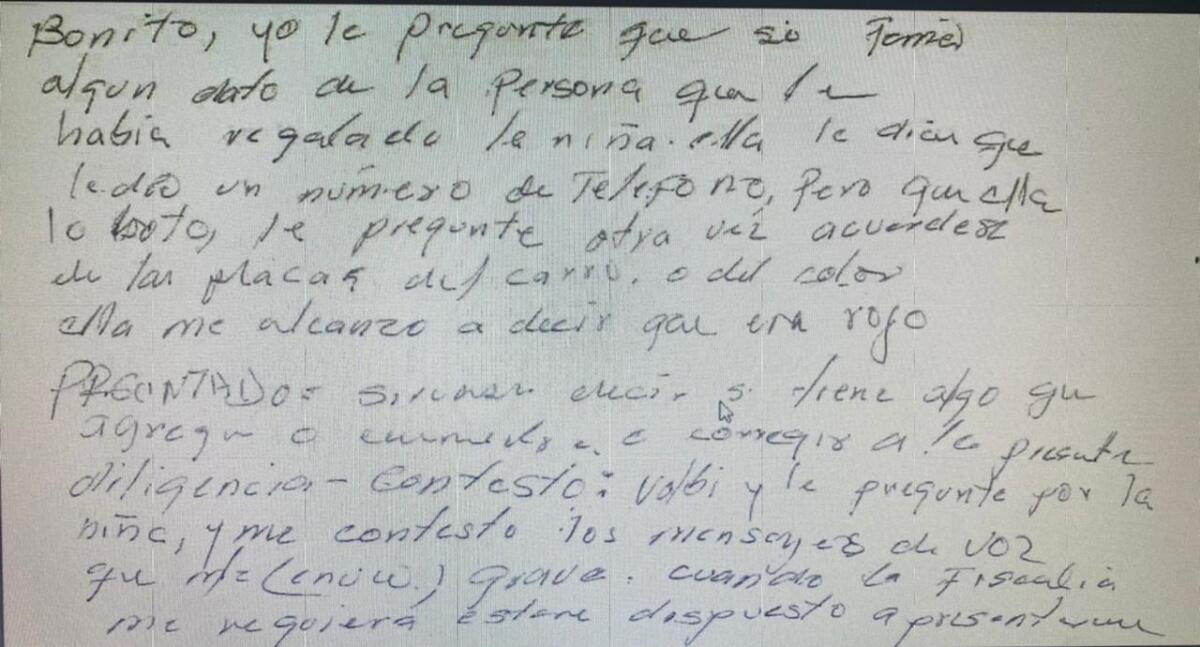 Bonito, yo le pregunte que si Tomó
algun dato de la Persona que le
habia regalado la niña. ella le dicen que
le dio un número de Telefono, Pero que ella
lo boto, le pregunte otra vez acuerdese
de las placas del carro, o del color
ella me alcanzo a decir que era rojo
PREGUNTADO= sirvase decir si tiene algo que
agregar o enmendar o corregir a la presente
diligencia - Contesto: Volbi y le pregunte por la
niña, y me contesto los mensajes de voz
que me (envio.) grave. cuando la Fiscalia
me requiera estare dispuesto a presentarme